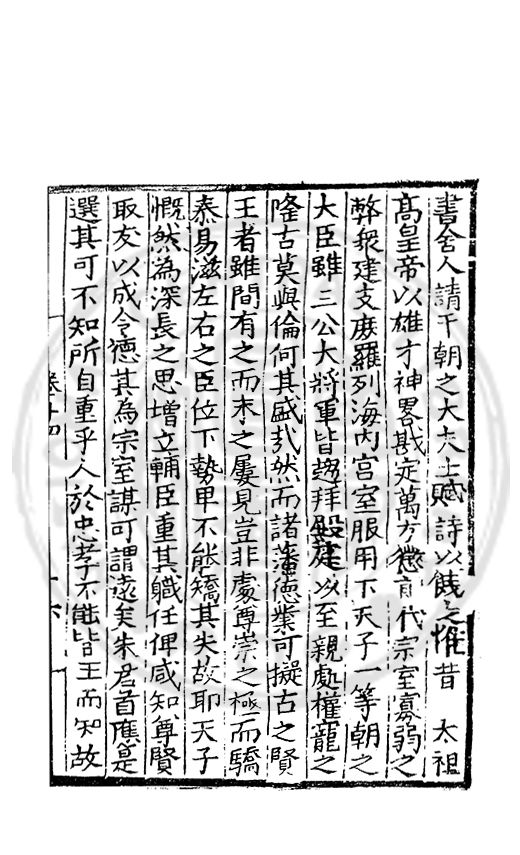 書舍人請于朝之大夫士賦詩以餞之惟昔　太祖
高皇帝以雄才神畧戡定萬方懲前代宗室寡弱之
弊衆建支庶羅列海內宮室服用下天子一等朝之
大臣雖三公大將軍皆趨拜殿廷以至親處權寵之
隆古莫與倫何其盛哉然而諸藩德業可擬古之賢
王者雖間有之而未之屢見豈非處尊崇之極而驕
泰易滋左右之臣位下勢卑不能矯其失故耶天子
慨然為深長之思增立輔臣重其職任俾咸知尊賢
取友以成令德其為宗室謀可謂遠矣朱君首膺是
選其可不知所自重乎人於忠孝不能皆王而知故
卷十四
十六